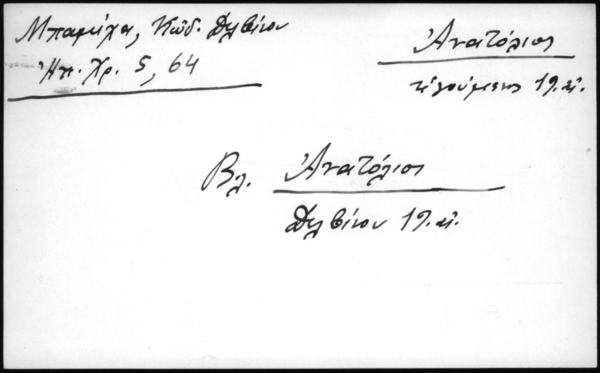 Μπαμίχα, Κώδ. Δελβίνου
Ἠπ. Χρ. 5, 64
Ἀνατόλιος
ἡγούμενος 19. αἰ.
Βλ. Ἀνατόλιος
Δελβίνου 19. αἰ.